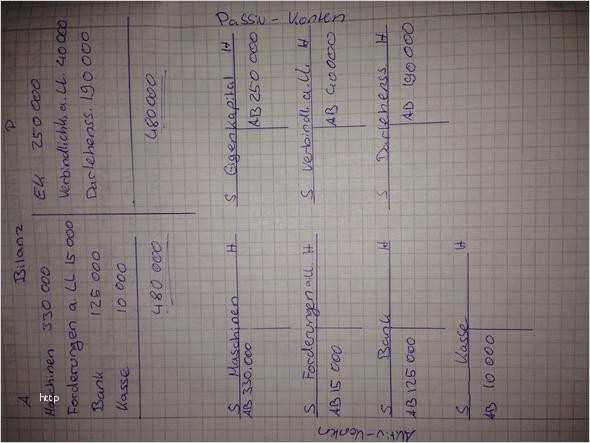 A Bilanz P
Maschinen 330 000 EK 250 000
Forderungen a. LL 15 000 Verbindlichk. a. LL 40 000
Bank 125 000 Darlehenss. 190 000
Kasse 10 000
480 000 480 000
Aktiv-Konten Passiv-Konten
S Maschinen H S Eigenkapital H
AB 330.000 AB 250 000
S Forderungen a.LL H S Verbindl. a. LL H
AB 15 000 AB 40 000
S Bank H S Darlehenss H
AB 125 000 AB 190 000
S Kasse H
AB 10 000
http